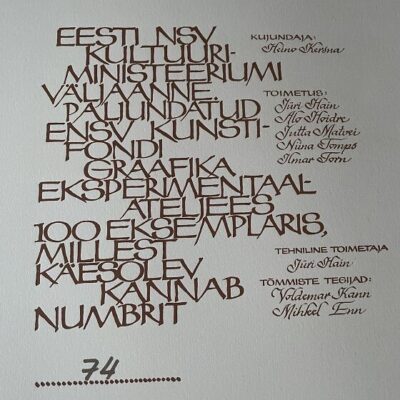 EESTI NSV
KULTUURI-
MINISTEERIUMI
VÄLJAANNE.
PALJUNDATUD
ENSV KUNSTI-
FONDI
GRAAFIKA
EKSPERIMENTAAL-
ATELJEES
100 EKSEMPLARIS,
MILLEST
KÄESOLEV
KANNAB
NUMBRIT
74
KUJUNDAJA:
Heino Kersna
TOIMETUS:
Jüri Hain
Alo Hoidre
Jutta Matvei
Ninna Tomps
Ilmar Torn
TEHNILINE TOIMETAJA
Jüri Hain
TÕMMISTE TEGIJAD:
Voldemar Kann
Mihkel Enn